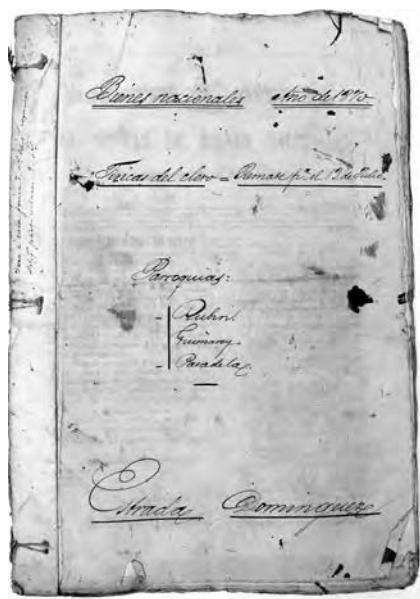 Bienes nacionales Año de 1870
Fincas del clero = Remate pª el 13 de Julio
Parroquias:
- Rubin.
Guimarey.
- Paradela.
Estrada Dominguez